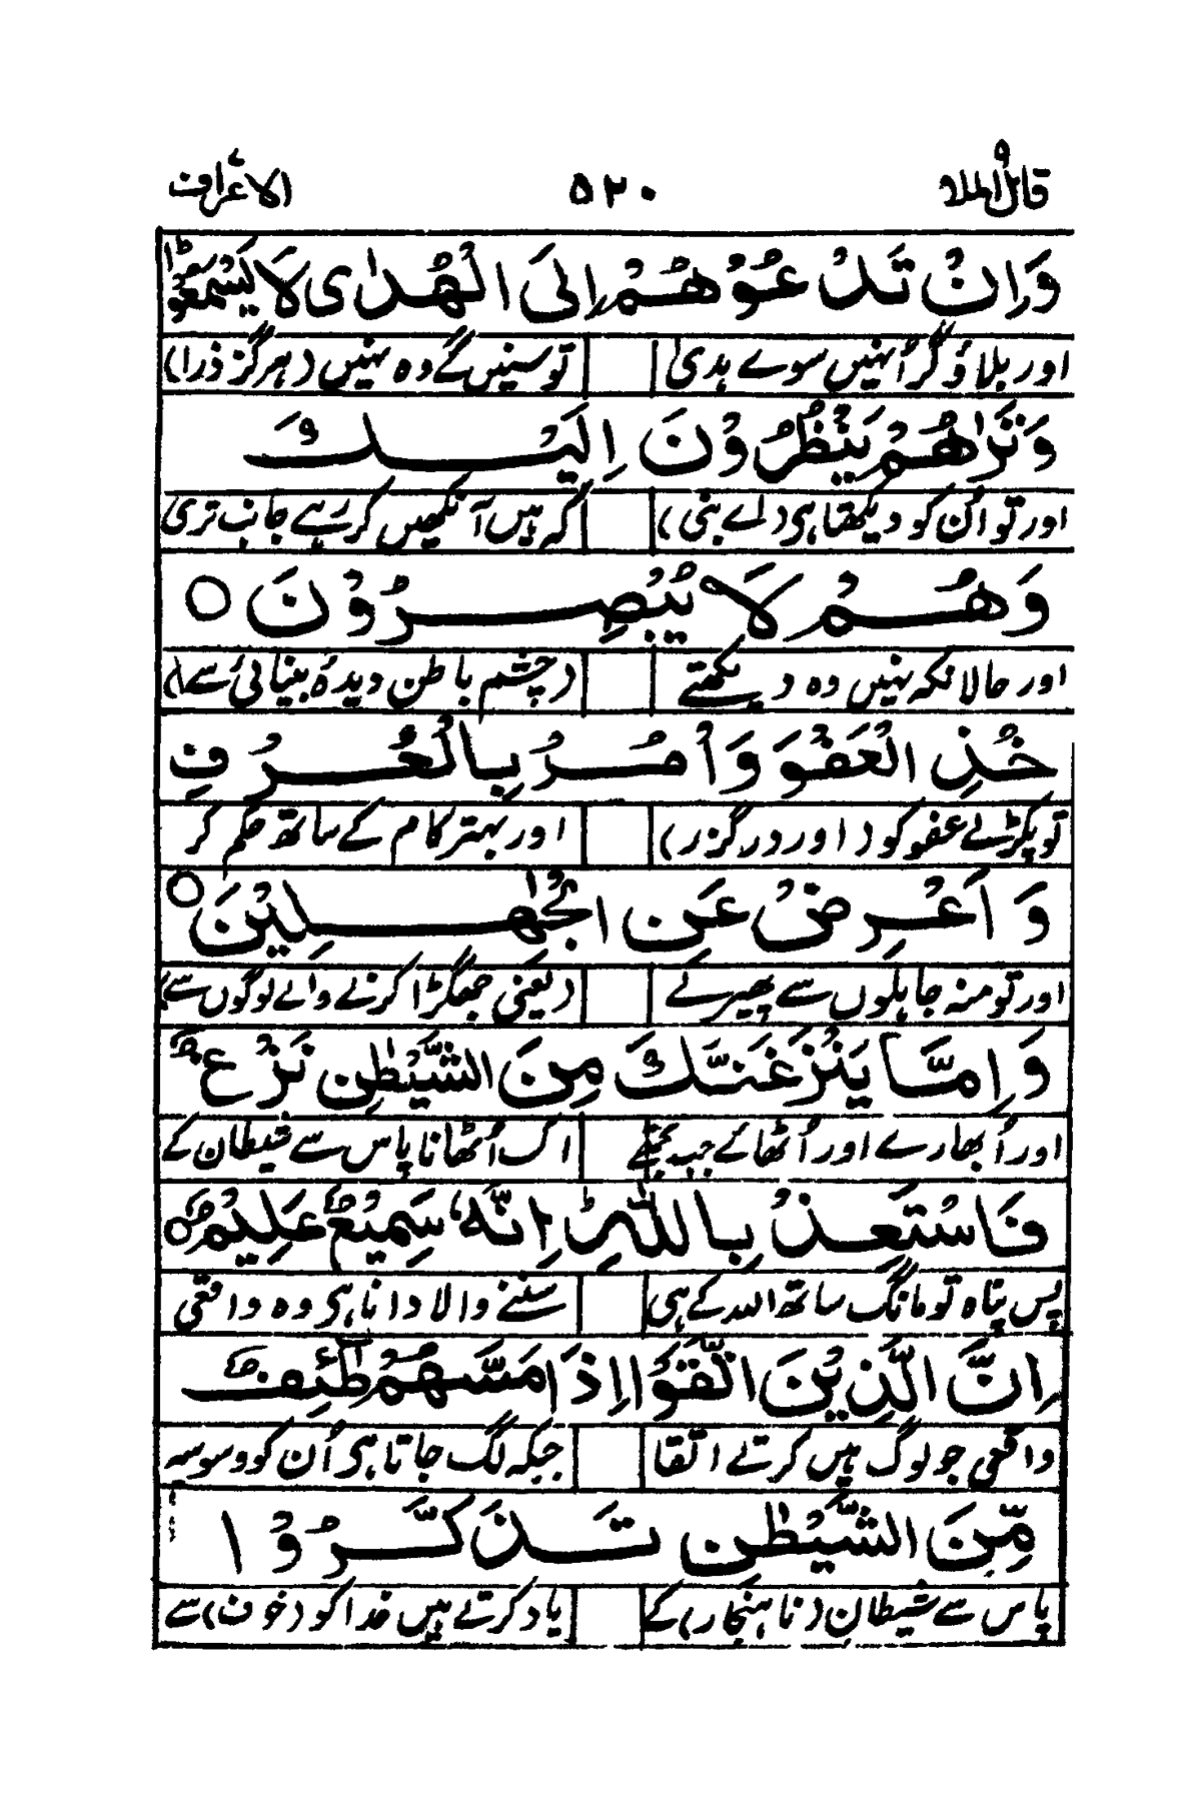 قال الملا ٩ ٥٢٠ الاعراف ٧
وَاِنْ تَدْعُوْهُمْ اِلَى الْهُدٰى لَا يَسْمَعُوْا ؕ
اور بلاؤ گر اُنہیں سوے ہدیٰ تو سنیں گے وہ نہیں (ہرگز ذرا)
وَتَرٰىهُمْ يَنْظُرُوْنَ اِلَيْكَ
اور تو اُن کو دیکھتا ہی (اے بنی) کہ ہیں آنکھیں کر رہے جانب تری
وَهُمْ لَا يُبْصِرُوْنَ ○
اور حالانکہ نہیں وہ دیکھتے (چشم باطن دیدۂ بینائی سے)
خُذِ الْعَفْوَ وَاْمُرْ بِالْعُرْفِ
تو پکڑ لے عفو کو (اور درگزر) اور بہتر کام کے ساتھ حکم کر
وَاَعْرِضْ عَنِ الْجٰهِلِيْنَ ○
اور تو منہ جاہلوں سے پھیر لے (یعنی جھگڑا کرنے والے لوگوں سے)
وَاِمَّا يَنْزَغَنَّكَ مِنَ الشَّيْطٰنِ نَزْغٌ
اور اُبھارے اور اُٹھائے جب تجھے اک اُٹھانا پاس سے شیطان کے
فَاسْتَعِذْ بِاللّٰهِ ؕ اِنَّهٗ سَمِيْعٌ عَلِيْمٌ ○
پس پناہ تو مانگ ساتھ اللہ کے ہی سننے والا دانا ہی وہ واقعی
اِنَّ الَّذِيْنَ اتَّقَوْا اِذَا مَسَّهُمْ طٰٓئِفٌ
واقعی جو لوگ ہیں کرتے اتقا جبکہ لگ جاتا ہی اُن کو وسوسہ
مِّنَ الشَّيْطٰنِ تَذَكَّرُوْا
پاس سے شیطان (ناہنجار) کے یاد کرتے ہیں خدا کو (خوف) سے